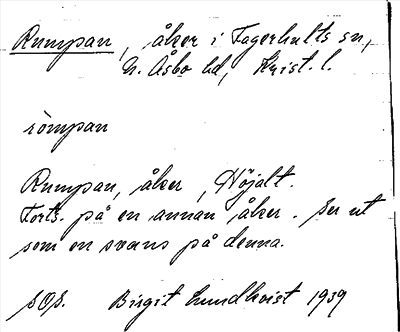 Rumpan, åker i Fagerhults sn,
N. Åsbo hd, Krist. l.
römpan
Rumpan, åker, Höjalt.
Forts. på en annan åker. Ser ut
som en svans på denna.
SOS. Birgit Lundkvist 1939